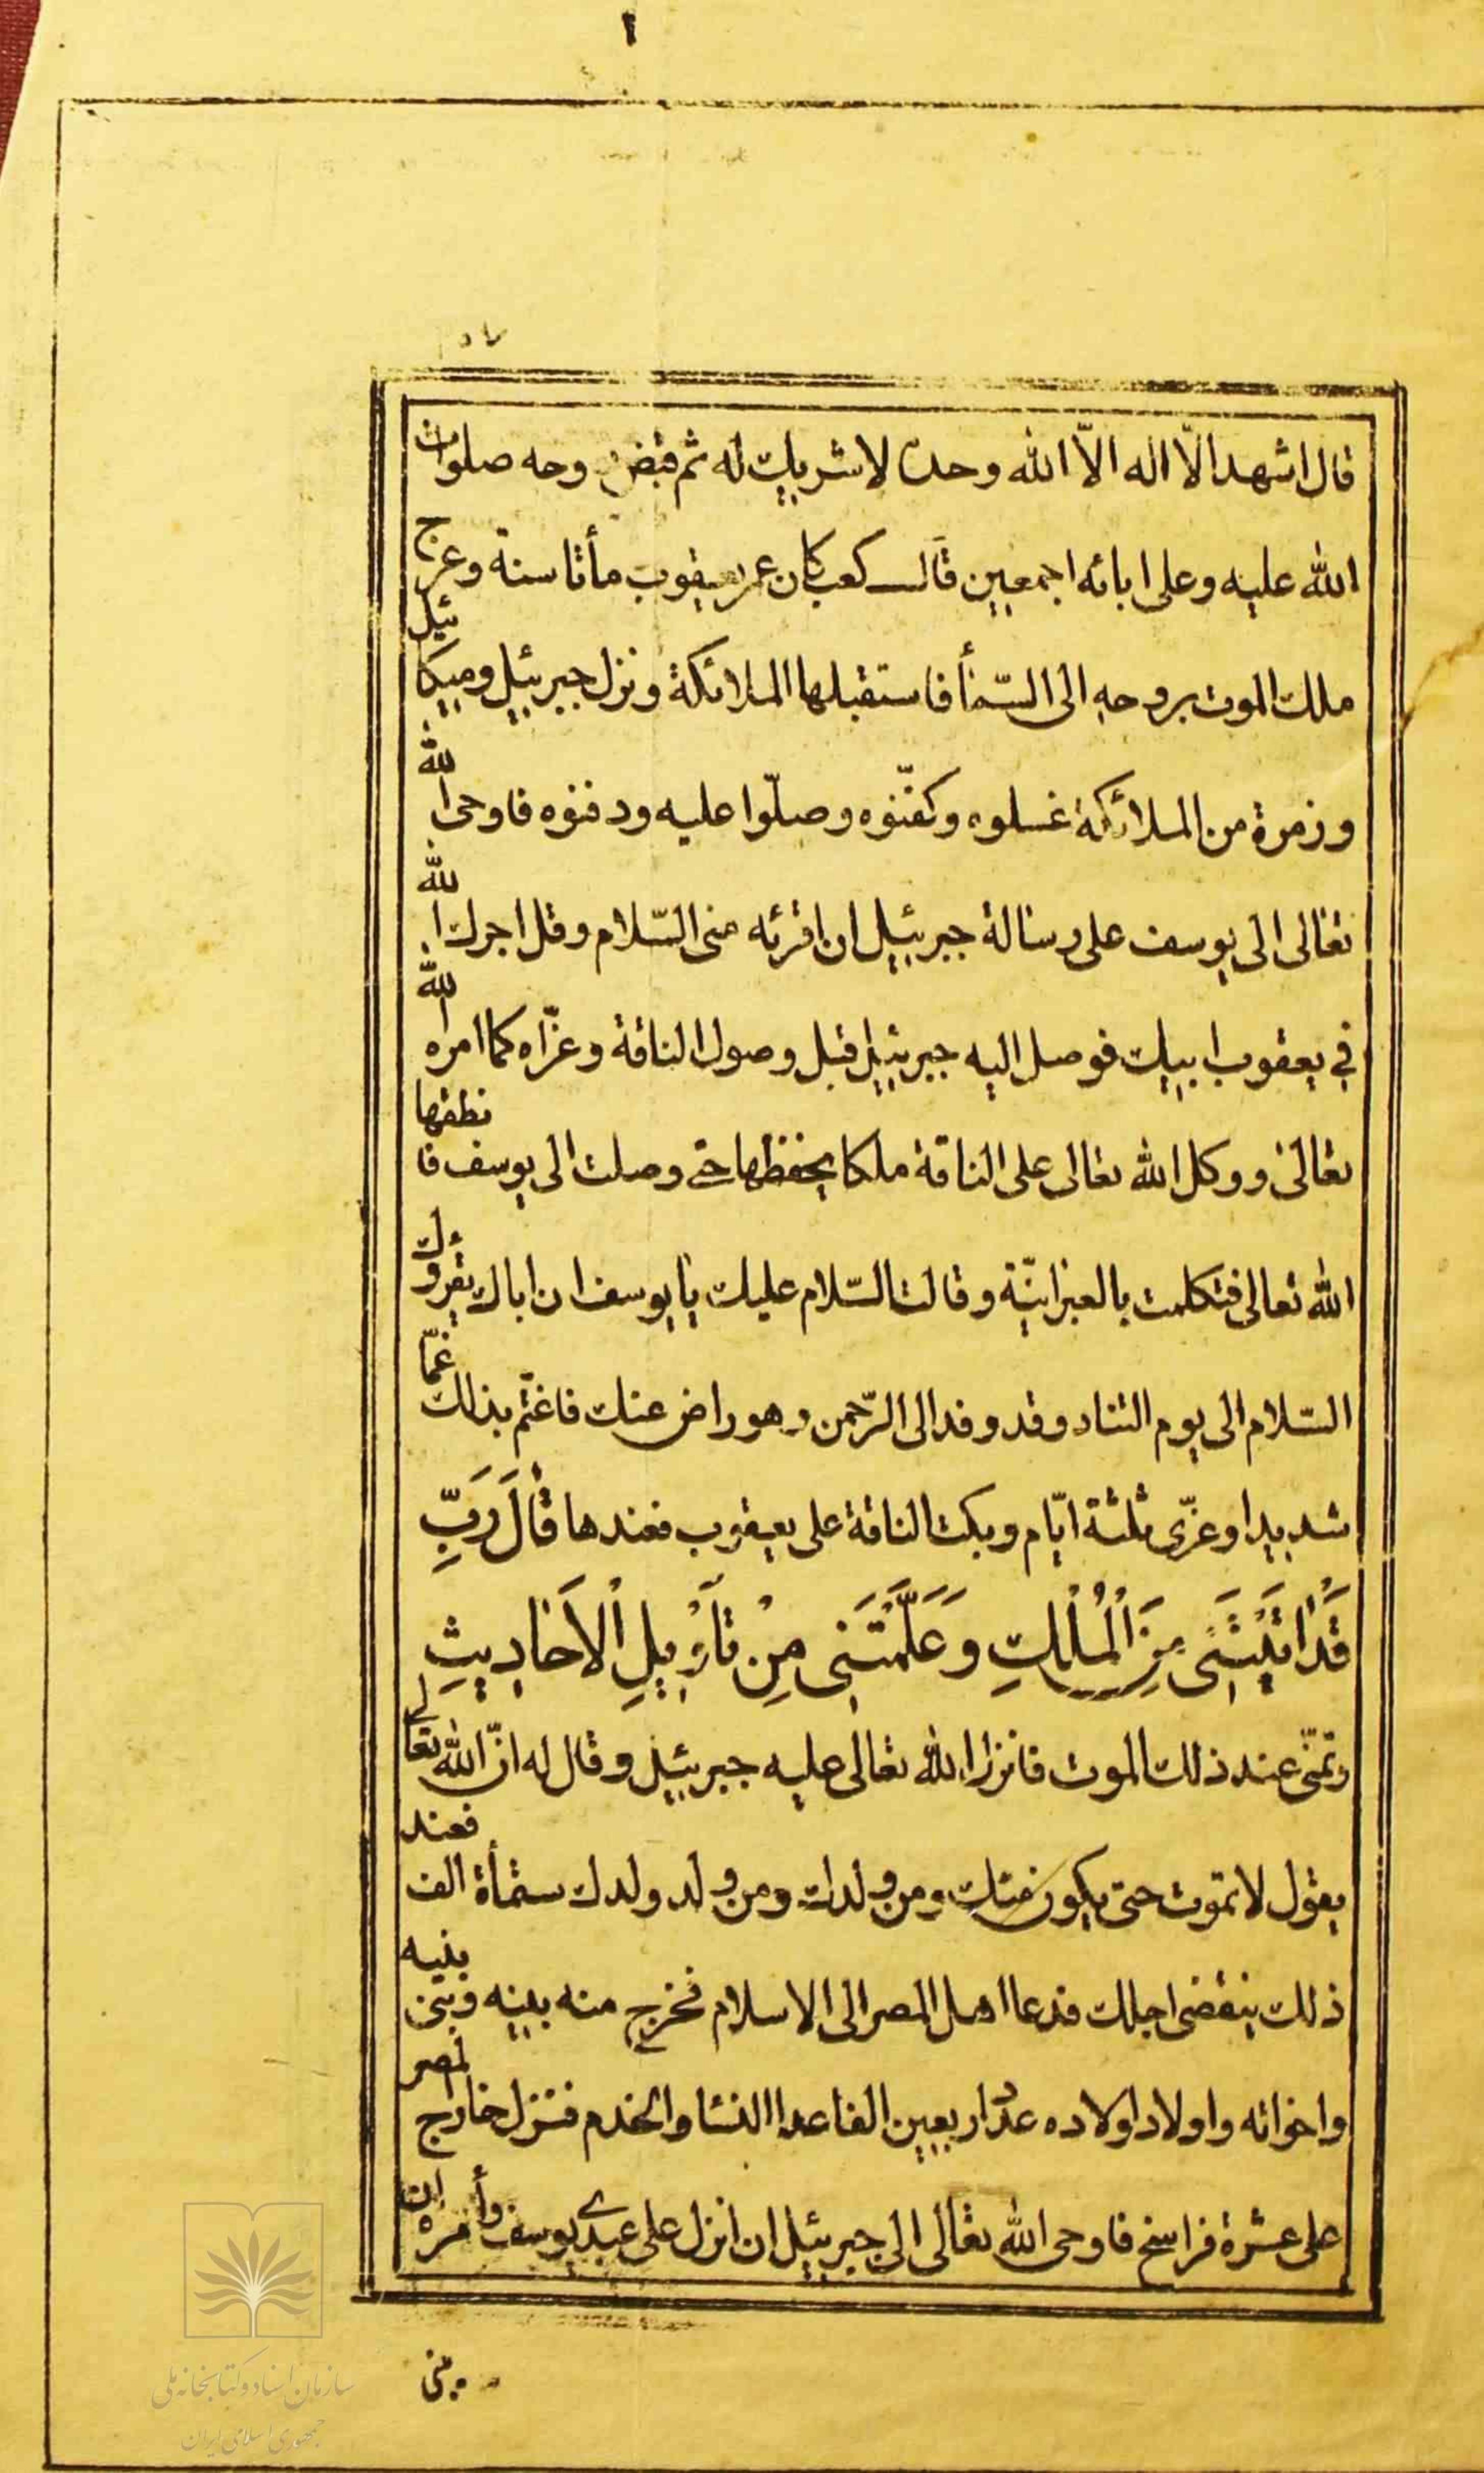 ١
قال اشهد الّا اله الّا الله وحده لا شريك له ثم قبض روحه صلوات
الله عليه وعلى ابائه اجمعين قال كعب كان عمر يعقوب مأتا سنة وعرج
ملك الموت بروحه الى السّمأ فاستقبلها الملائكة ونزل جبرئيل وميكائيل
وزمرة من الملائكة غسلوه وكفّنوه وصلّوا عليه ودفنوه فاوحى الله
تعالى الى يوسف على رسالة جبرئيل ان اقرئه منى السّلام وقل اجرك الله
في يعقوب ابيك فوصل اليه جبرئيل قبل وصول الناقة وعزّاه كما امره الله
تعالى ووكل الله تعالى على الناقة ملكا يحفظها حتى وصلت الى يوسف فانطقها
الله تعالى فتكلمت بالعبرانيّة وقالت السّلام عليك يا يوسف ان اباك يقرؤك
السّلام الى يوم التناد وقد وفد الى الرّحمن وهو راض عنك فاغتّم بذلك غمّا
شديدا وعزّى ثلثة ايّام وبكت الناقة على يعقوب فعندها قَالَ رَبِّ
قَدْ اتَيْتَنَى مِنَ الْمُلْكِ وَعَلَّمْتَنى مِنْ تَأْوْيلِ الْاَحَاديثِ
وتمنّى عند ذلك الموت فانزل الله تعالى عليه جبرئيل وقال له انّ الله تعالى
يقول لا تموت حتى يكون منك ومن ولدك ومن ولد ولدك ستمأة الف فعند
ذلك ينقضى اجلك فدعا اهل المصر الى الاسلام فخرج منه بينه وبين بنيه
واخوانه واولاد اولاده عدد اربعين الفا عدا النسا والخدم فنزل خارج المصر
على عشرة فراسخ فاوحى الله تعالى الى جبرئيل ان انزل على عبدى يوسف وأمره ان
يبنى
سازمان اسناد و کتابخانه ملی
جمهوری اسلامی ایران